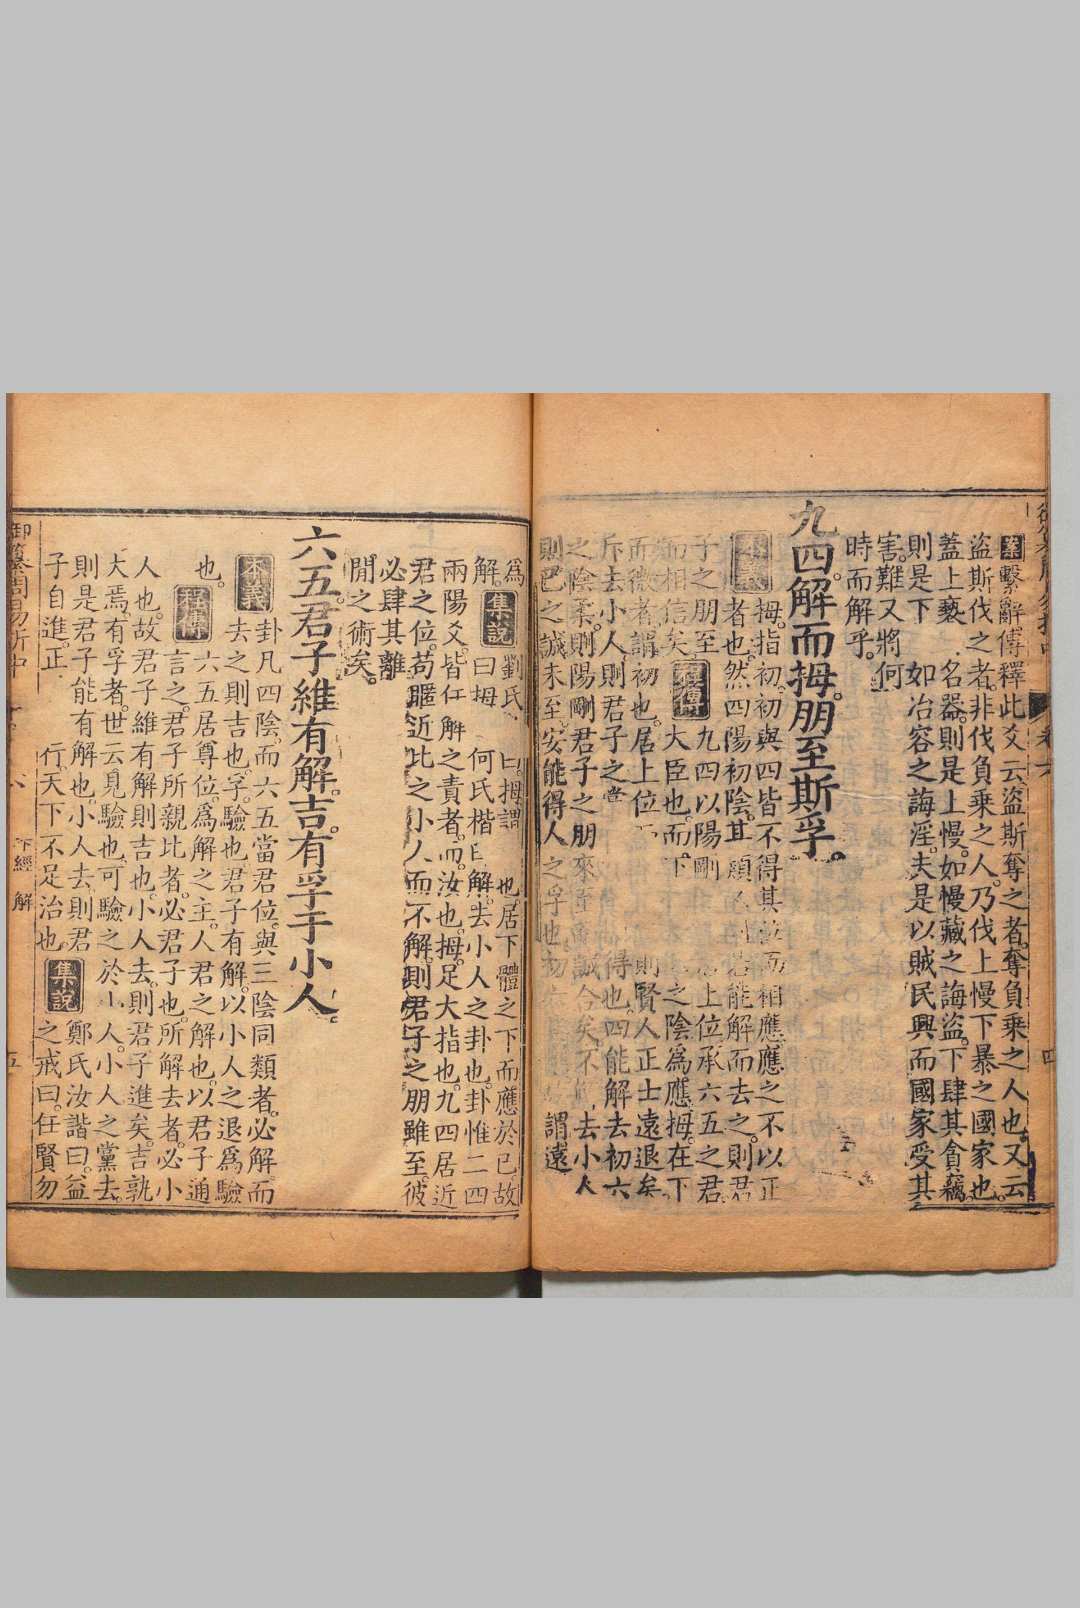 繫辭傳釋此爻云盜斯奪之者奪負乘之人也又云
盜斯伐之者非伐負乘之人乃伐上慢下暴之國家也
蓋上褻名器則是上慢如慢藏之誨盜下肆其貪竊
則是下如冶容之誨淫夫是以賊民興而國家受其
害難又將何
時而解乎
九四解而拇朋至斯孚
本義
拇指初初與四皆不得其位而相應應之不以正
者也然四陽初陰其類不同若能解而去之則君
子之朋至
而相信矣
程傳
九四以陽剛
上位承六五之君
大臣也而下
之陰為應拇在下
而微者謂初也居上位
則賢人正士遠退矣
斥去小人則君子之黨
得也四能解去初六
之陰柔則陽剛君子之朋來至而誠合矣不解去小人
則己之誠未至安能得人之孚也初六
謂遠
為
解
集說
劉氏
曰拇謂
也居下體之下而應於己故
曰拇
何氏楷曰解去小人之卦也卦惟二四
兩陽爻皆任解之責者而汝也拇足大指也九四居近
君之位苟暱近比之小人而不解則君子之朋雖至彼
必肆其離
閒之術矣
六五君子維有解吉有孚于小人
本義
卦凡四陰而六五當君位與三陰同類者必解而
去之則吉也孚驗也君子有解以小人之退為驗
也
程傳
六五居尊位為解之主人君之解也以君子通
言之君子所親比者必君子也所解去者必小
人也故君子維有解則吉也小人去則君子進矣吉孰
大焉有孚者世云見驗也可驗之於小人小人之黨去
則是君子能有解也小人去則君
子自進正
行天下不足治也
集說
鄭氏汝諧曰益
之戒曰任賢勿
御纂周易折中
下經 解
五